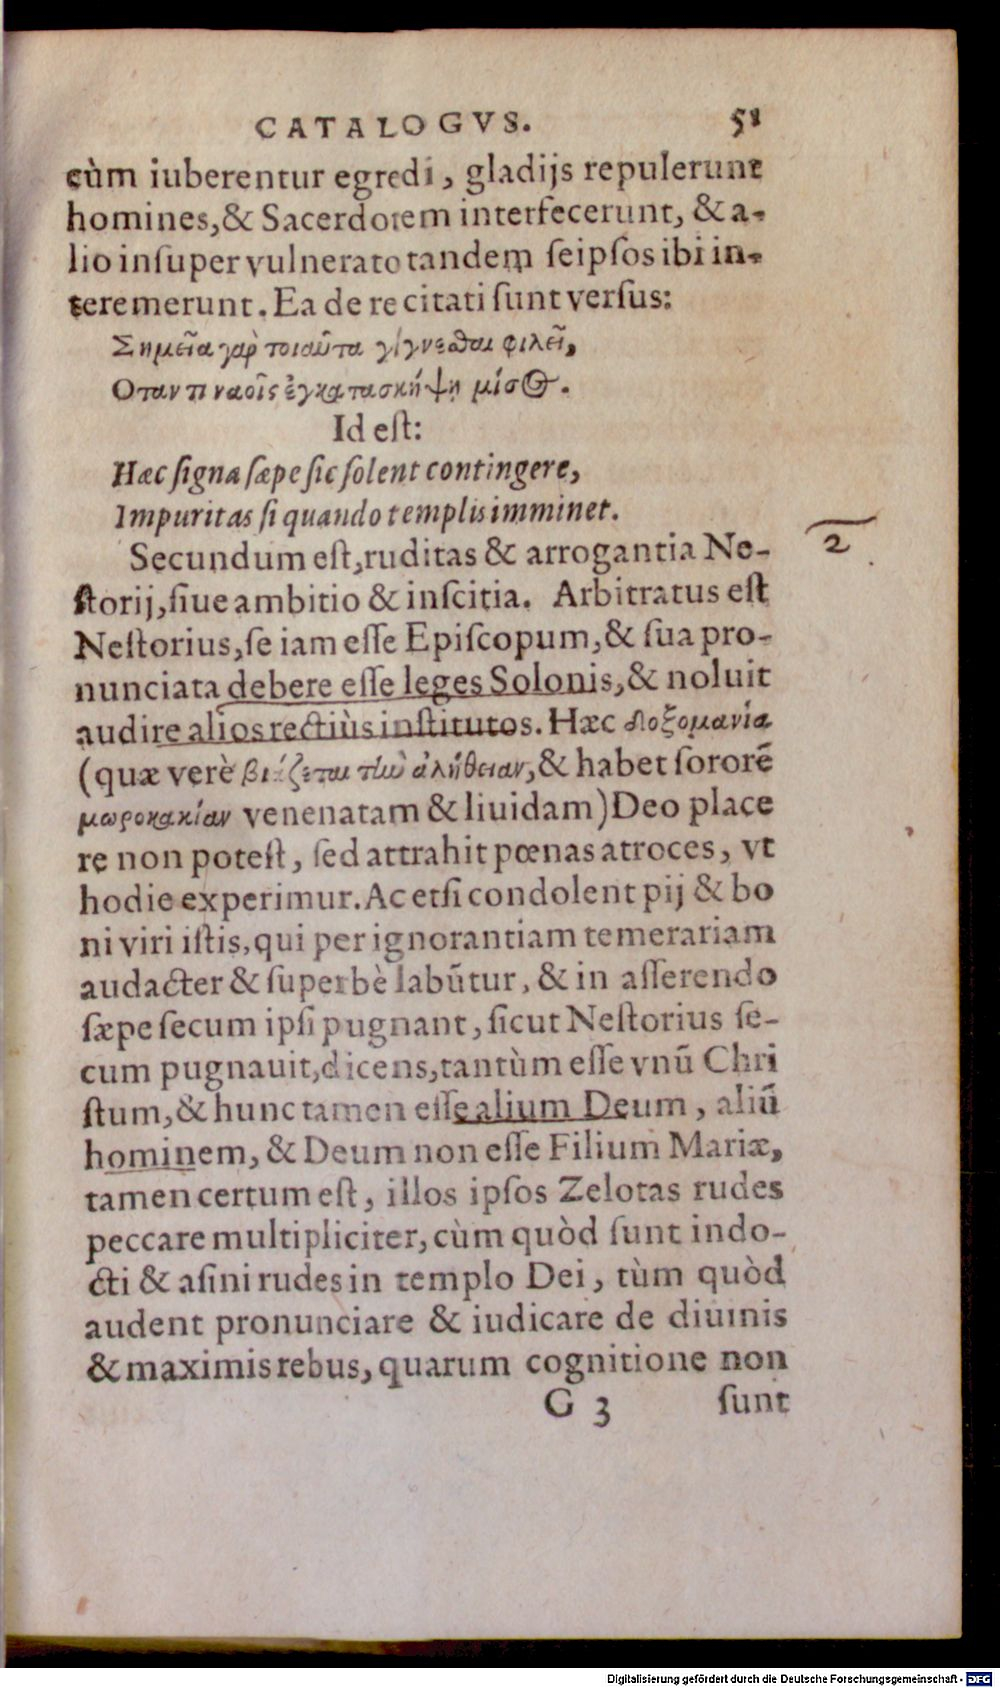 CATALOGVS. 51
cùm iuberentur egredi, gladijs repulerunt
homines, & Sacerdotem interfecerunt, & a-
lio insuper vulnerato tandem seipsos ibi in-
teremerunt. Ea de re citati sunt versus:
Σημεῖα γὰρ τοιαῦτα γίγνεσθαι φιλεῖ,
Οταν τι ναοῖς ἐγκατασκήψῃ μίσος.
Id est:
Hæc signa sæpe sic solent contingere,
Impuritas si quando templis imminet.
Secundum est, ruditas & arrogantia Ne-
storij, siue ambitio & inscitia. Arbitratus est
2
Nestorius, se iam esse Episcopum, & sua pro-
nunciata debere esse leges Solonis, & noluit
audire alios rectiùs institutos. Hæc δοξομανία
(quæ verè βιάζεται τὴν ἀλήθειαν, & habet sororẽ
μωροκακίαν venenatam & liuidam) Deo place
re non potest, sed attrahit pœnas atroces, vt
hodie experimur. Ac etsi condolent pij & bo
ni viri istis, qui per ignorantiam temerariam
audacter & superbè labũtur, & in asserendo
sæpe secum ipsi pugnant, sicut Nestorius se-
cum pugnauit, dicens, tantùm esse vnũ Chri
stum, & hunc tamen esse alium Deum, aliũ
hominem, & Deum non esse Filium Mariæ,
tamen certum est, illos ipsos Zelotas rudes
peccare multipliciter, cùm quòd sunt indo-
cti & asini rudes in templo Dei, tùm quòd
audent pronunciare & iudicare de diuinis
& maximis rebus, quarum cognitione non
G 3 sunt
Digitalisierung gefördert durch die Deutsche Forschungsgemeinschaft - DFG